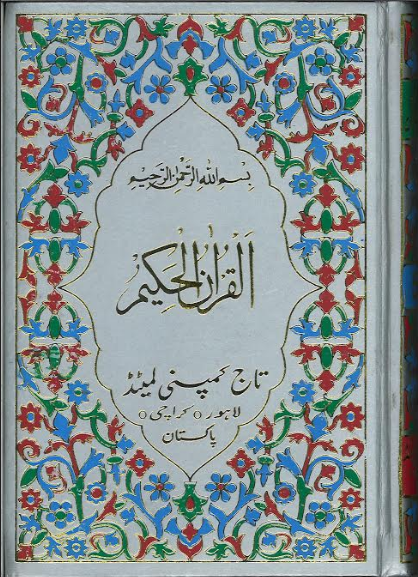 بسم الله الرحمن الرحيم
اَلْقُرْاٰنُ الْحَكِيْمُ
تاج کمپنی لمیٹڈ
لاہور ○ کراچی ○
پاکستان